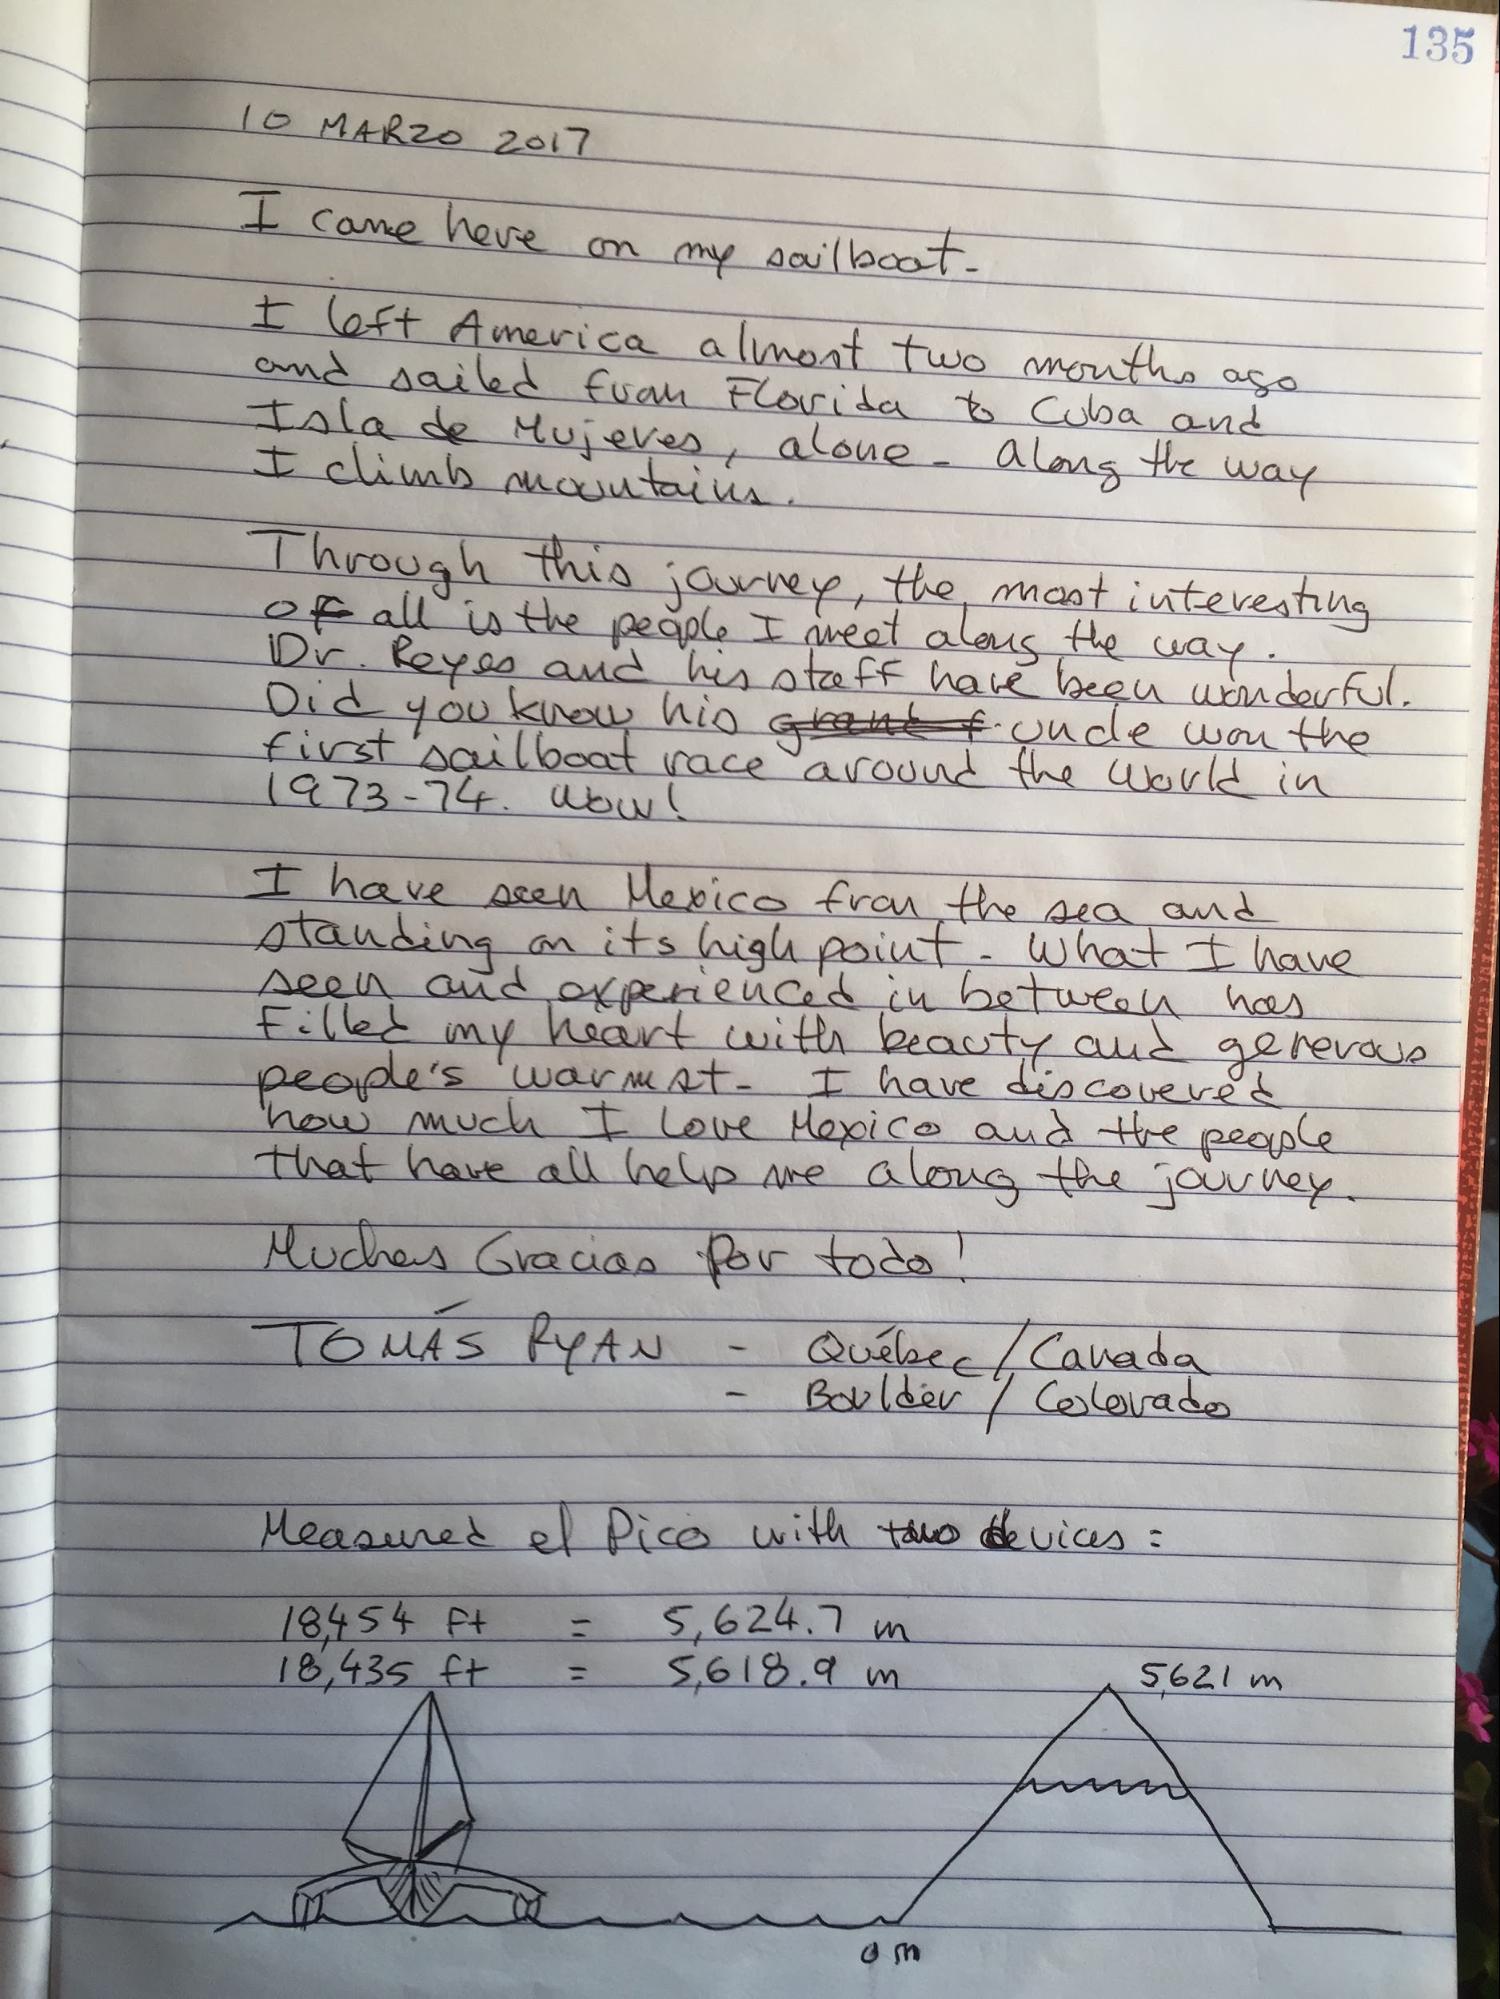 135
10 MARZO 2017
I came here on my sailboat.
I left America almost two months ago
and sailed from Florida to Cuba and
Isla de Mujeres, alone. Along the way
I climb mountains.
Through this journey, the most interesting
of all is the people I meet along the way.
Dr. Reyes and his staff have been wonderful.
Did you know his grant f uncle won the
first sailboat race around the world in
1973-74. Wow!
I have seen Mexico from the sea and
standing on its high point. What I have
seen and experienced in between has
filled my heart with beauty and generous
people's warmst. I have discovered
how much I love Mexico and the people
that have all help me along the journey.
Muchas Gracias por todo!
TOMÁS RYAN - Québec/Canada
- Boulder/Colorado
Measured el Pico with two devices:
18,454 ft = 5,624.7 m
18,435 ft = 5,618.9 m
5,621 m
0 m